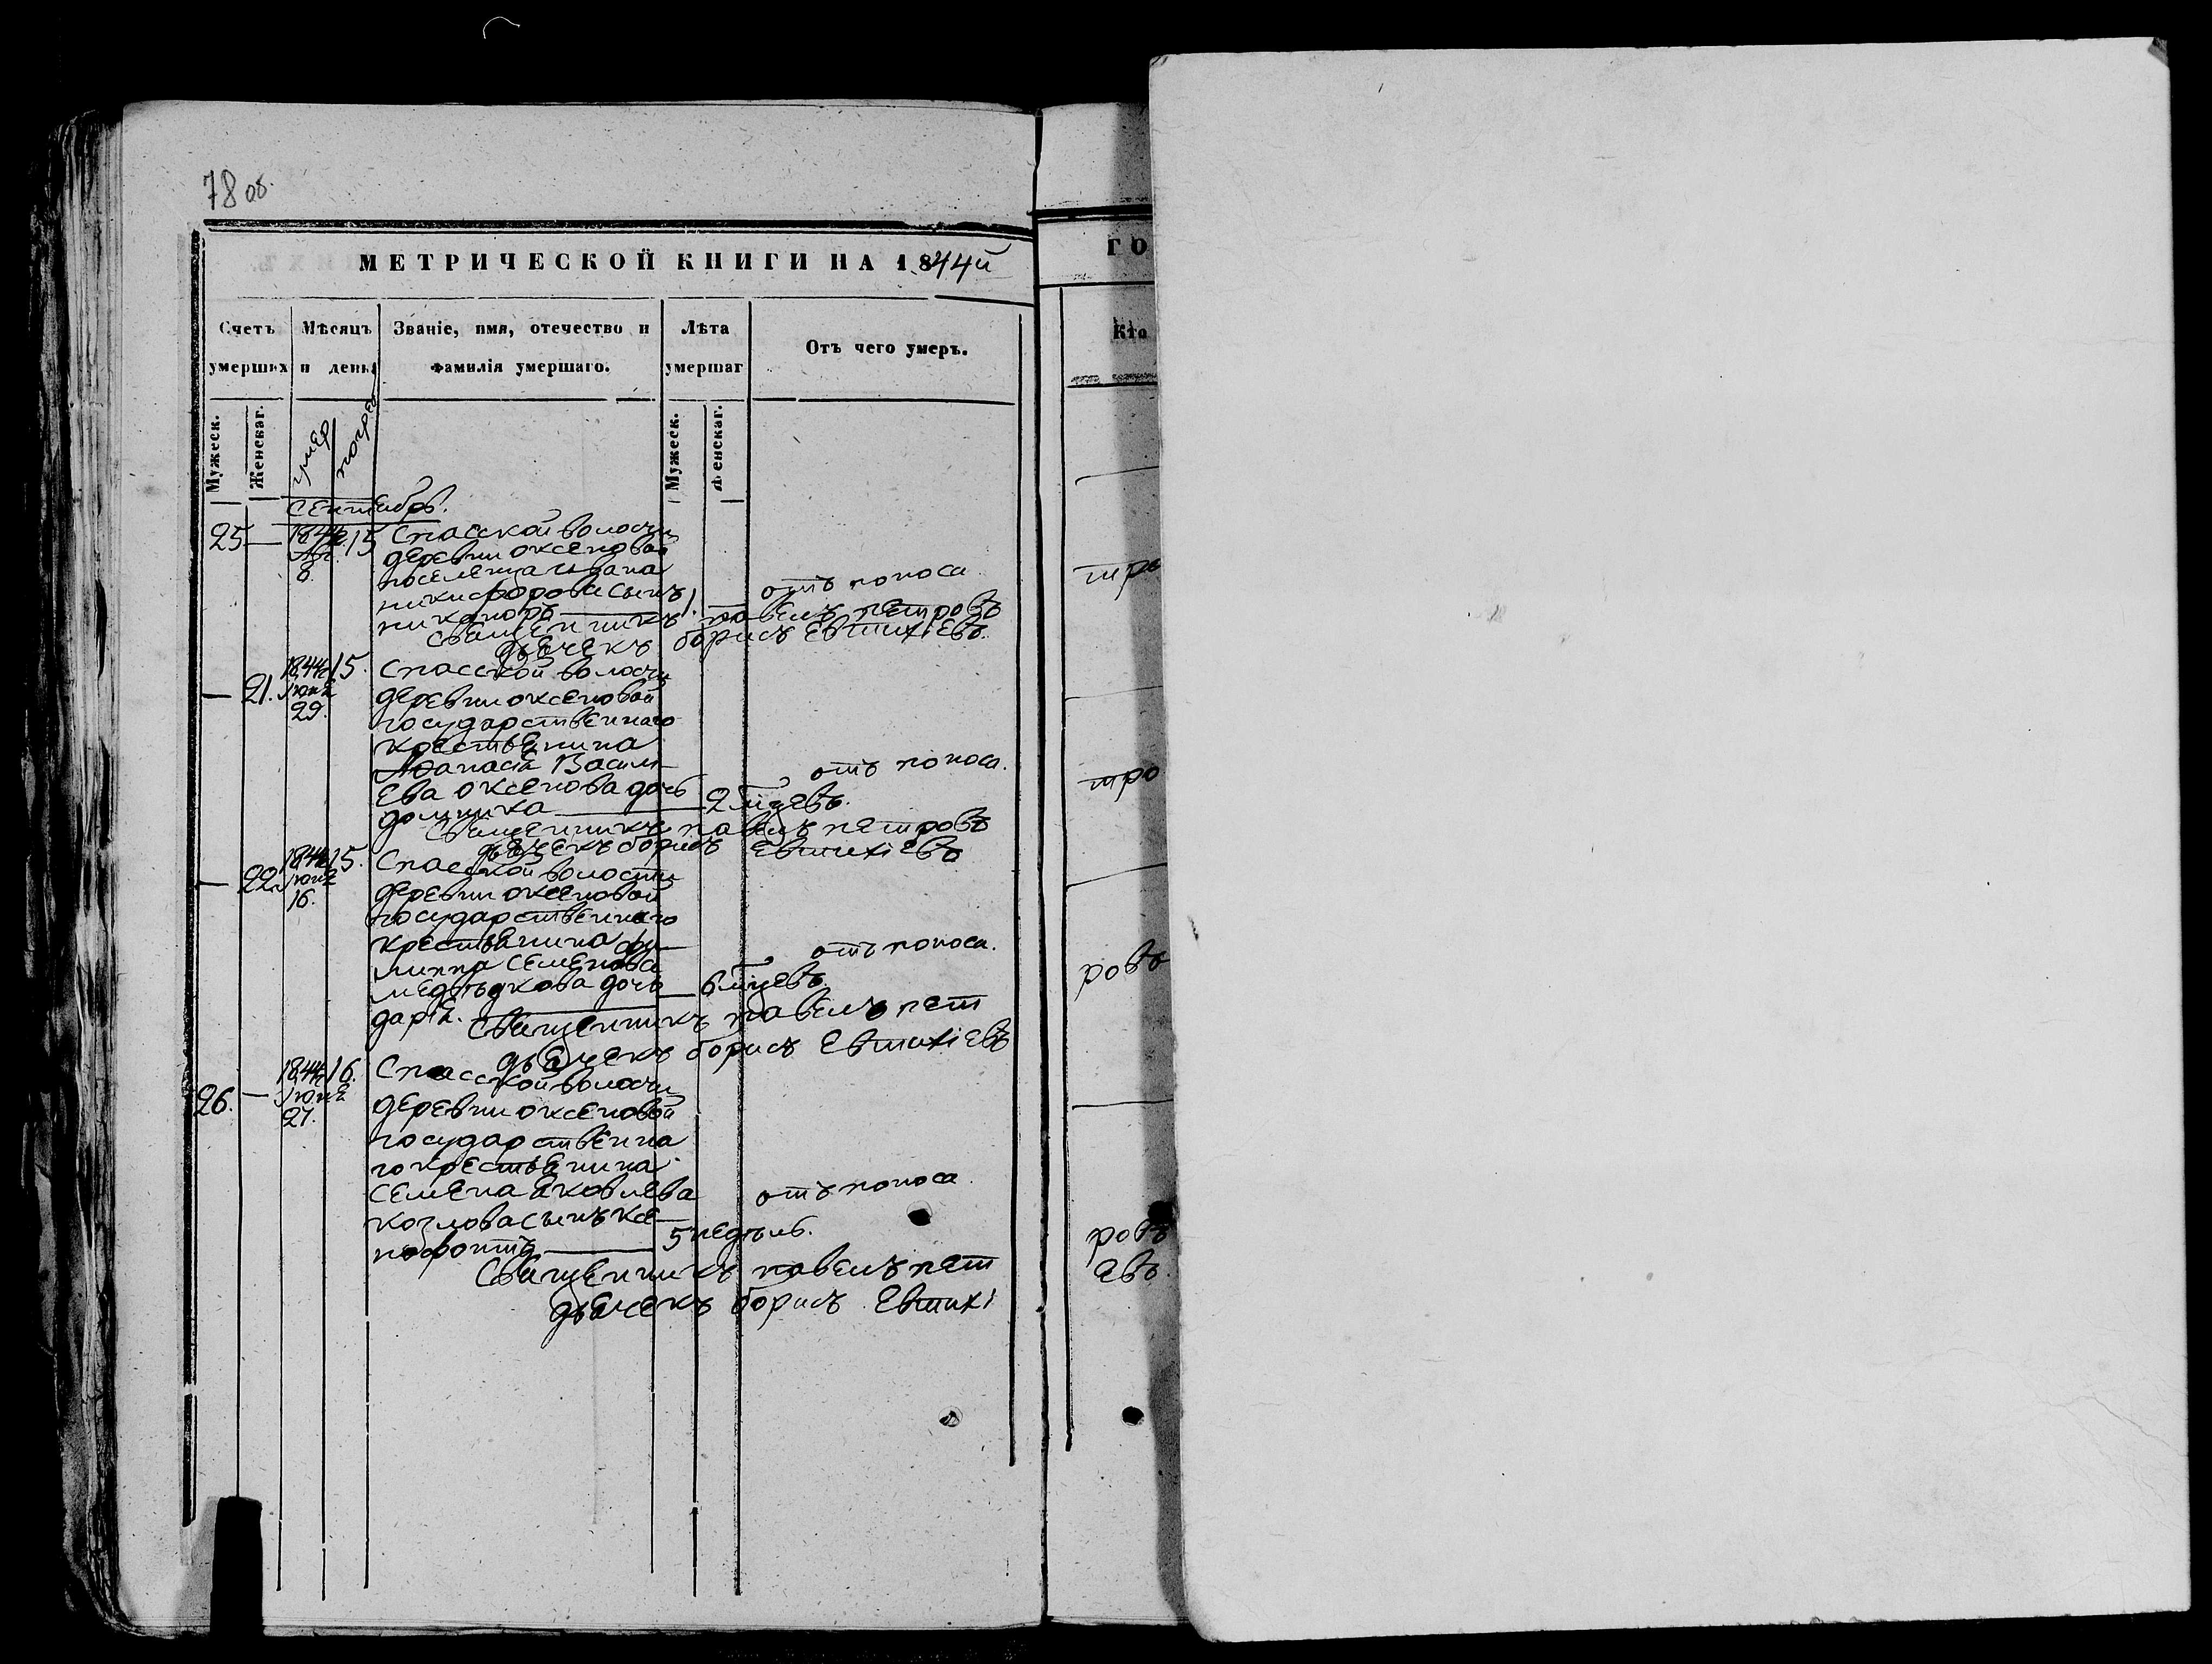 78 об.
МЕТРИЧЕСКОЙ КНИГИ НА 1844й
ГО
Счетъ умершихъ
Мѣсяцъ и день
Званіе, имя, отечество и фамилія умершаго.
Лѣта умершаг
Отъ чего умеръ.
Кто
Мужеск.
Женскаг.
умер
погреб
Мужеск.
Женскаг.
сентебрь.
25 — 1844 15 Спасской волости
8. деревни оксеновой
поселенца ивана
никифорова сынъ отъ поноса
никаноръ — 1. —
священникъ павелъ петровъ
дьячекъ борисъ Евтихіевъ.
— 21. 1844 15. Спасской волости
Июне 29. деревни оксеновой
государственнаго
крестьянина
Афанасія Васил
ева оксенова дочь отъ поноса.
домника — 2 м҃цевъ.
Священникъ павелъ петровъ
дьячекъ борисъ Евтихіевъ
— 22. 1844 15. Спасской волости
Июне 16. деревни оксеновой
государственнаго
крестьянина фи
липпа семенова отъ поноса.
медведкова дочь — 6 м҃цевъ
дарія.
священникъ павелъ пет
ровъ
дьячекъ борисъ Евтихіевъ
26. — 1844 16. Спасской волости
Июне 27. деревни оксеновой
государственна
го крестьянина
семена яковлева отъ поноса
козлова сынъ ксе
нофонтъ — 5 недѣль.
Священникъ павелъ пет
ровъ
дьячекъ борисъ Евтихі
евъ.